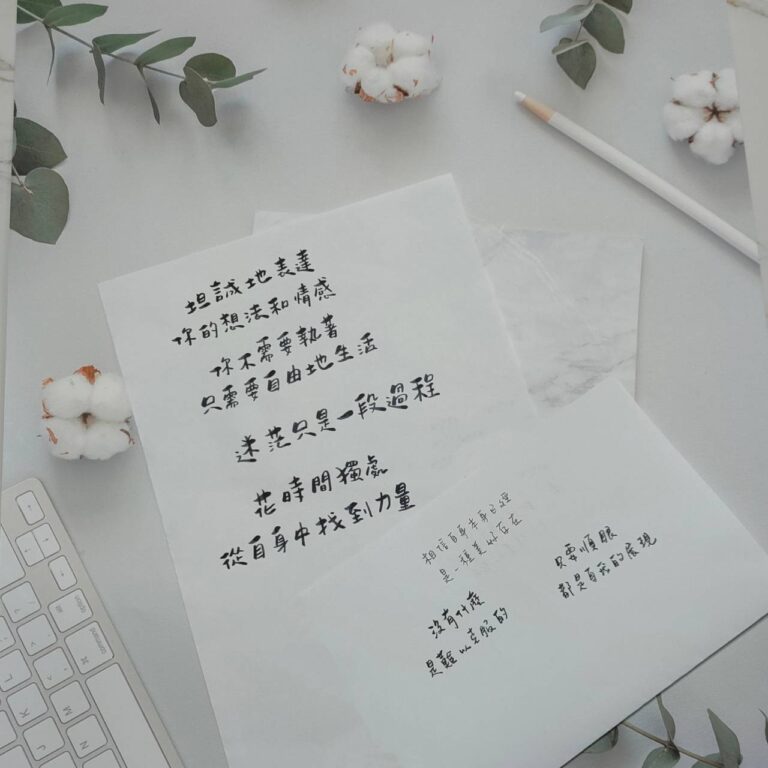 坦誠地表達
你的想法和情感
你不需要執著
只需要自由地生活
迷茫只是一段過程
花時間獨處
從自身中找到力量
相信自身本身已經
是一種美好存在
沒有什麼
是難以克服的
只要順眼
都是自我的展現
option
command